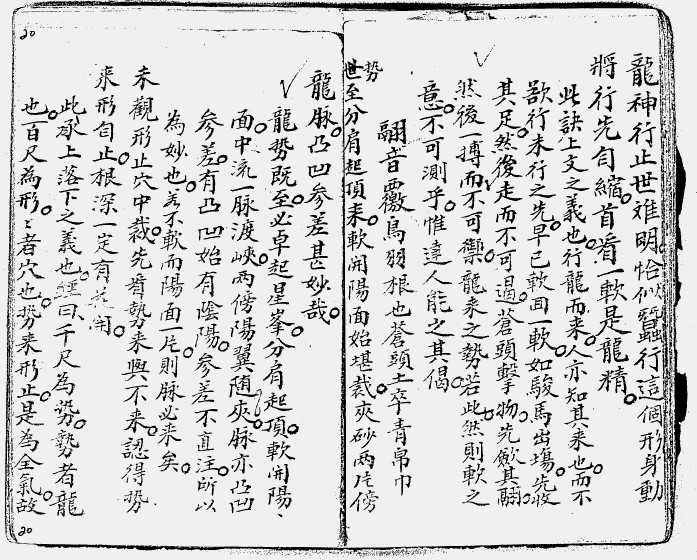 龍神行止世难明恰似蚕行這個形身動
將行先勾縮首看一軟是龍精
此訣上文之義也行龍而来人亦知其来也而不
欲行未行之先早已軟囬一軟如駿馬出塲先收
其足然後走而不可遏蒼頭擊物先歛其翮
然後一搏而不可禦龍来之勢若此然則軟之
意不可測乎惟達人能之其偈
翮音覈鳥羽根也蒼頭士卒青帛巾
势
世至分肩起頂来軟開陽面始堪裁夾砂两片傍
龍脉凸凹參差甚妙哉
龍势既至必卓起星峯分肩起頂軟開陽
面中流一脉渡峽两傍陽翼随夾脉亦凸凹
參差有凸凹始有陰陽參差不直注所以
為妙也若不軟而陽面一片則脉必来矣
未觀形止穴中裁先看勢来與不来認得势
来形自止根深一定有花開
此承上落下之義也經曰千尺為势勢者龍
也百尺為形形者穴也势来形止是為全氣故
20
20